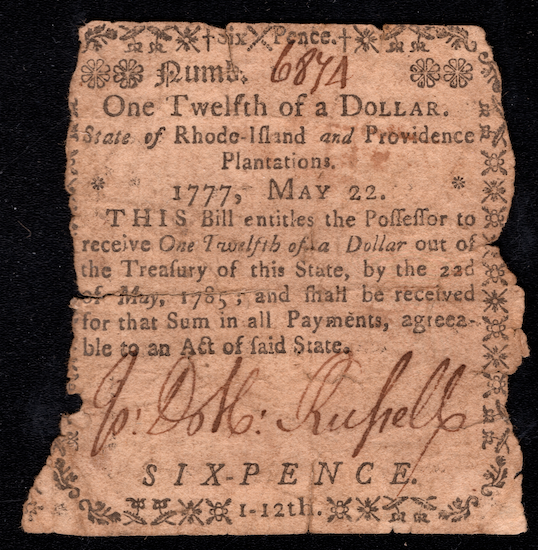 †Six Pence.†
Numb. 6874
One Twelfth of a DOLLAR.
State of Rhode-Iſland and Providence
Plantations.
* 1777, MAY 22. *
THIS Bill entitles the Poſſeſſor to
receive One Twelfth of a Dollar out of
the Treaſury of this State, by the 22d
of May, 1785, and ſhall be received
for that Sum in all Payments, agreea-
ble to an Act of ſaid State.
Ruſsell
SIX-PENCE.
1-12th.